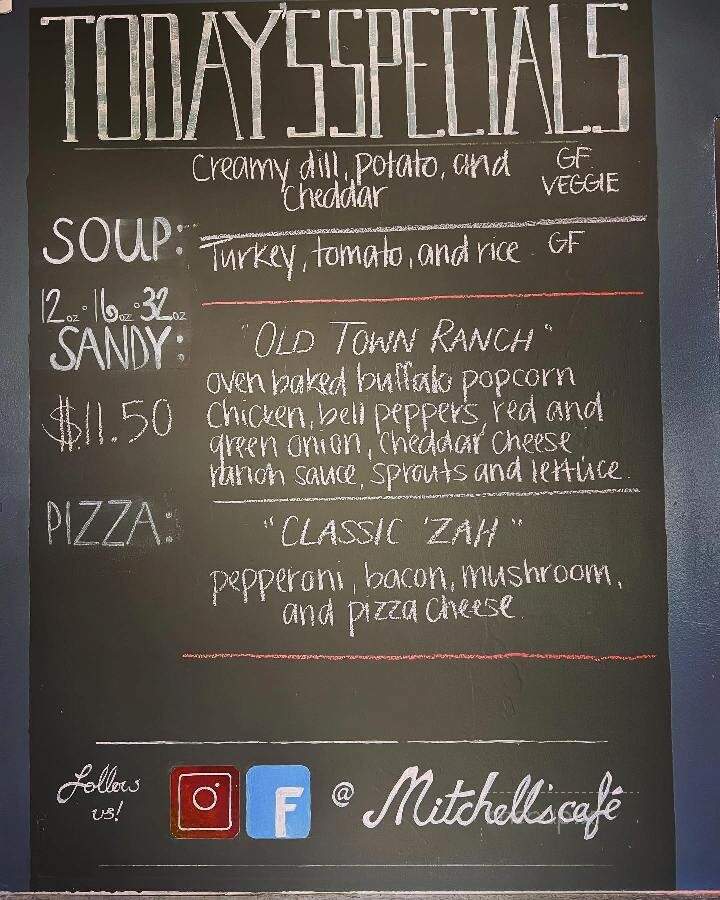 TODAY'S SPECIALS
Creamy dill, potato, and
cheddar
GF
VEGGIE
SOUP:
Turkey, tomato, and rice GF
12oz · 16oz · 32oz
SANDY:
"OLD TOWN RANCH"
$11.50
oven baked buffalo popcorn
chicken, bell peppers, red and
green onion, cheddar cheese
ranch sauce, sprouts and lettuce.
PIZZA:
"CLASSIC 'ZAH"
pepperoni, bacon, mushroom,
and pizza cheese.
Follow
us!
F
@ Mitchellscafé